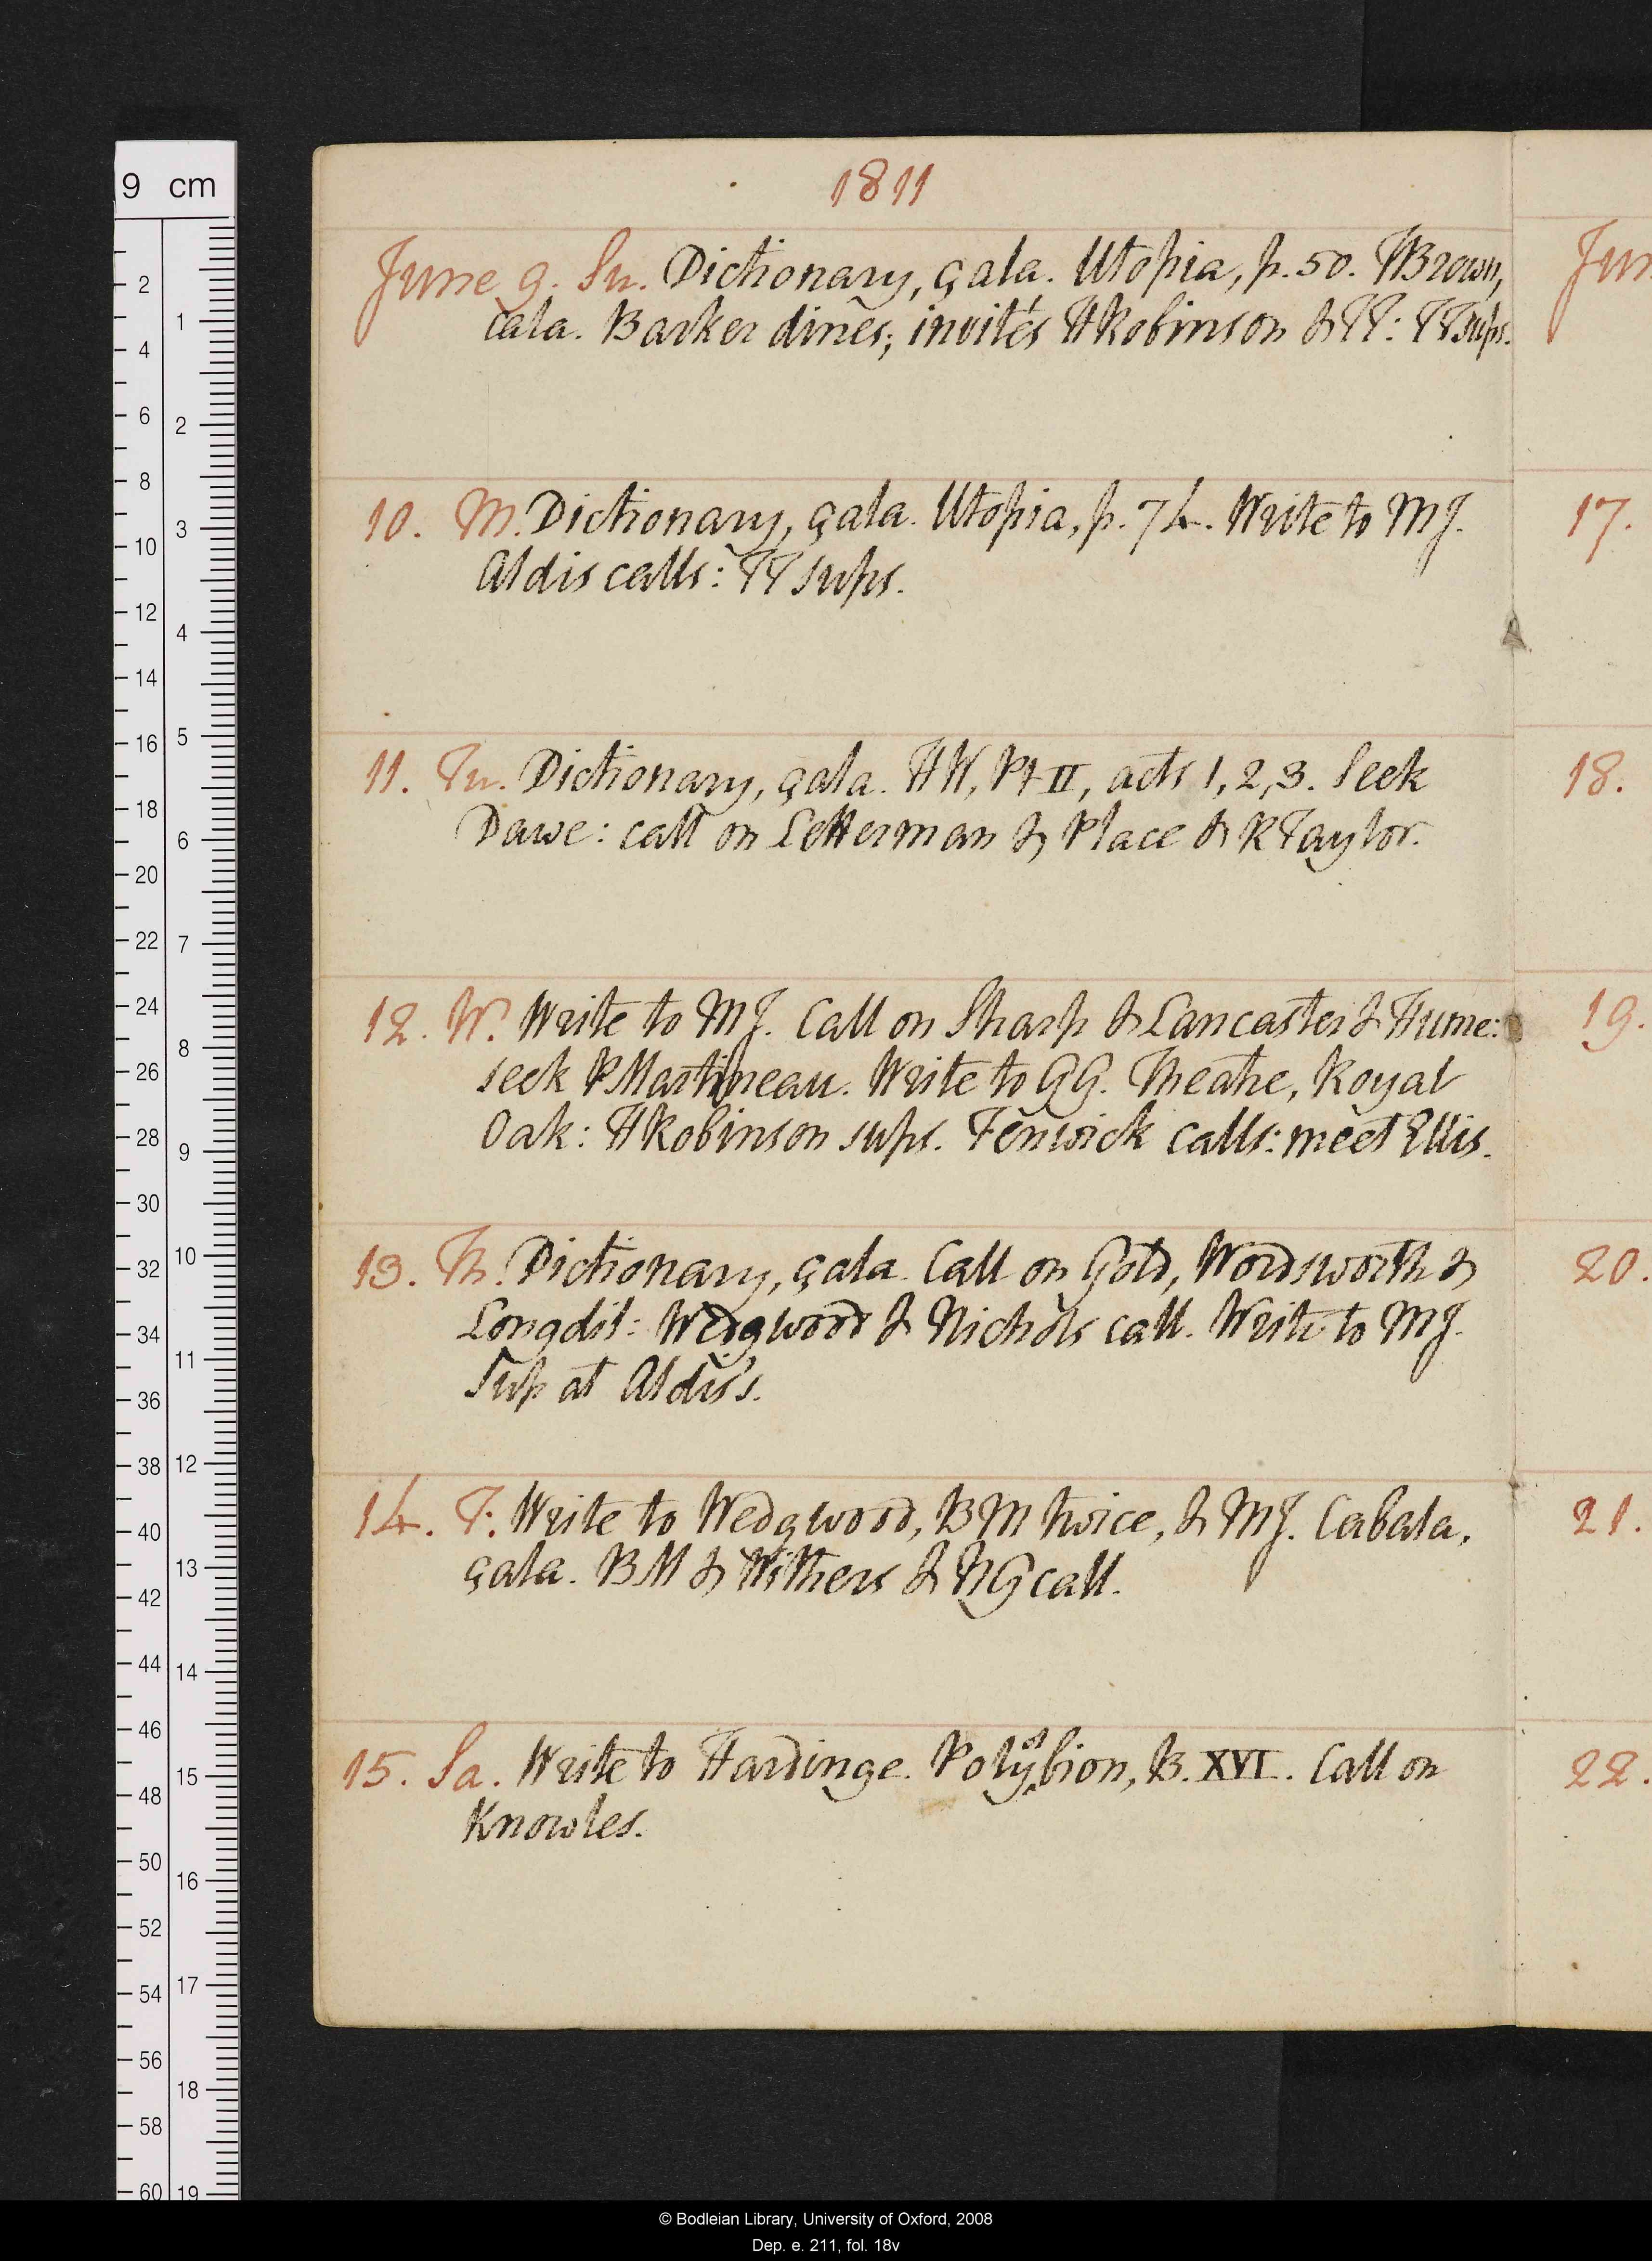 1811
June 9. Su. Dictionary, çala. Utopia, p. 50. T Brown,
çala. Barker dines; invités H Robinson & TT: TT sups.
10. M. Dictionary, çala. Utopia, p. 74. Write to MJ.
Aldis calls: TT sups.
11. Tu. Dictionary, çala. HW, Pt II, acts 1, 2, 3. Seek
Dawe: call on Letterman & Place & R Taylor.
12. W. Write to MJ. Call on Sharp & Lancaster & Hume:
seek P Martineau. Write to GG. Theatre, Royal
Oak: H Robinson sups. Fenwick calls: meet Ellis.
13. Th. Dictionary, çala. Call on Gold, Wordsworth &
Longdil: Wedgwood & Nichols call. Write to MJ.
Sup at Aldis's.
14. F. Write to Wedgwood, BM twice, & MJ. Cabala,
çala. BM & Withers & NG call.
15. Sa. Write to Hardinge. Polyolbion, B. XVI. Call on
Knowles.
Jun
17.
18.
19.
20.
21.
22.
9 cm
2
4
6
8
10
12
14
16
18
20
22
24
26
28
30
32
34
36
38
40
42
44
46
48
50
52
54
56
58
60
1
2
3
4
5
6
7
8
9
10
11
12
13
14
15
16
17
18
19
© Bodleian Library, University of Oxford, 2008
Dep. e. 211, fol. 18v